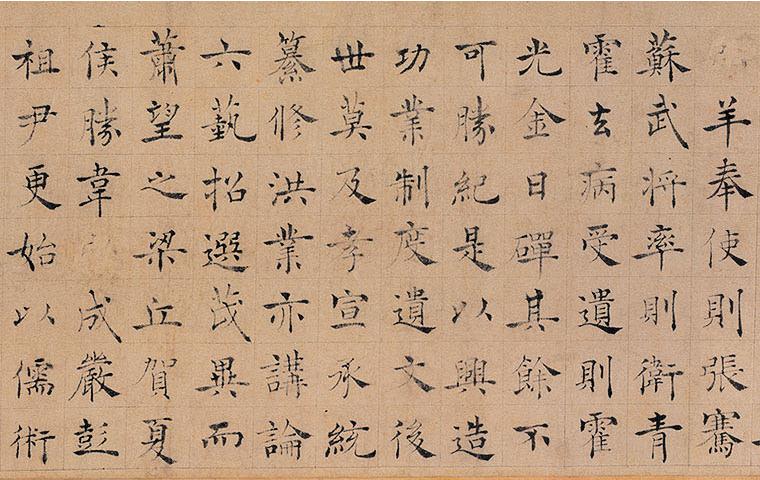 羊奉使則張騫
蘇武將率則衛青
霍去病受遺則霍
光金日磾其餘不
可勝紀是以興造
功業制度遺文後
世莫及孝宣承統
纂修洪業亦講論
六藝招選茂異而
蕭望之梁丘賀夏
侯勝韋成嚴彭
祖尹更始以儒術